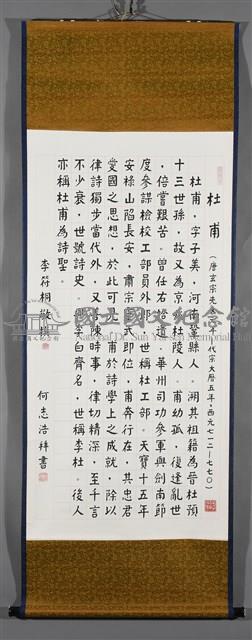 杜甫
(唐玄宗先天元年—代宗大曆五年·西元七一二—七七〇)
杜甫，字子美，河南鞏縣人。溯其祖籍為晉杜預
十三世孫，故又為京兆杜陵人。甫幼孤，復逢亂世
，倍嘗艱苦。曾任右拾遺、華州司功參軍與劍南節
度參謀檢校工部員外郎，世稱杜工部。天寶十五年
安祿山陷長安，肅宗靈武即位，甫奔行在，其忠君
愛國之思想，於此可見。甫於詩學上之成就，除以
律詩獨步當代外，又善陳時事，律切精深，至千言
不少衰，世號詩史。與李白齊名，世稱李杜。後人
亦稱杜甫為詩聖。
李符桐敬撰
何志浩拜書
國立國父紀念館
National Dr. Sun Yat-sen Memorial Hall